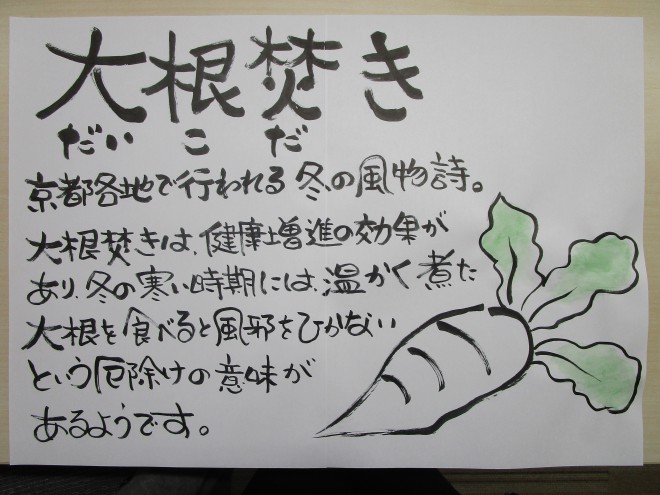 大根焚き
だいこだ
京都各地で行われる冬の風物詩。
大根焚きは、健康増進の効果が
あり、冬の寒い時期には、温かく煮た
大根を食べると風邪をひかない
という厄除けの意味が
あるようです。